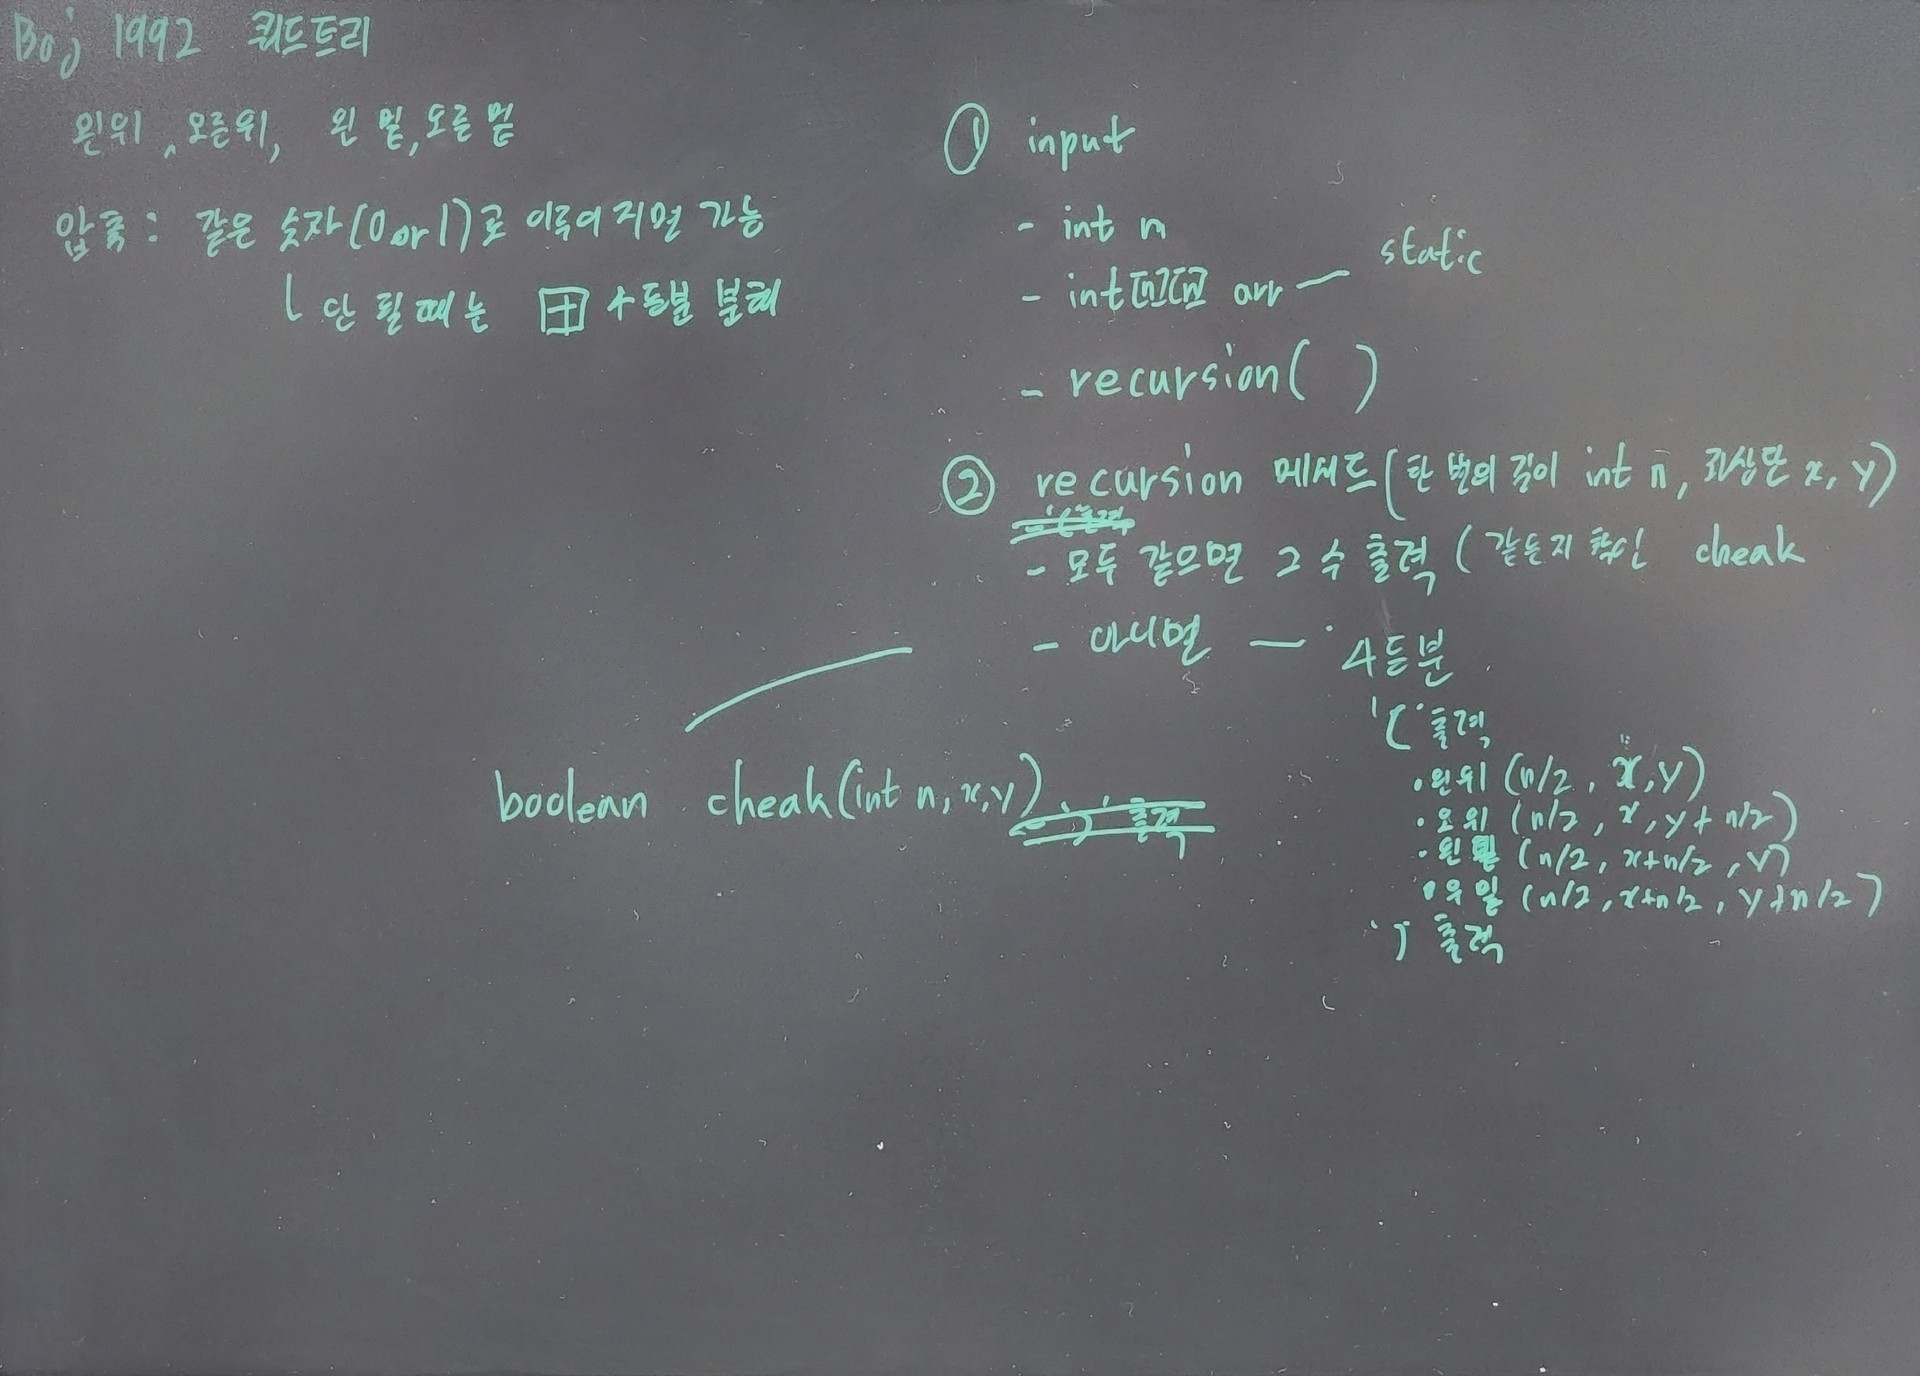 Boj 1992 쿼드트리
왼위, 오른위, 왼 밑, 오른 밑
압축 : 같은 숫자(0 or 1)로 이루어지면 가능
└ 안 될 때는 田 4등분 분해
① input
- int n
- int[n][n] arr — static
- recursion( )
② recursion 메서드(한 변의 길이 int n, 좌상단 x, y)
- 모두 같으면 그 수 출력 (같은지 확인 cheak
- 아니면 — 4등분
'(' 출력
• 왼위 (n/2, x, y)
• 오위 (n/2, x, y + n/2)
• 왼밑 (n/2, x+n/2, y)
• 우밑 (n/2, x+n/2, y+n/2)
')' 출력
boolean cheak(int n, x, y)